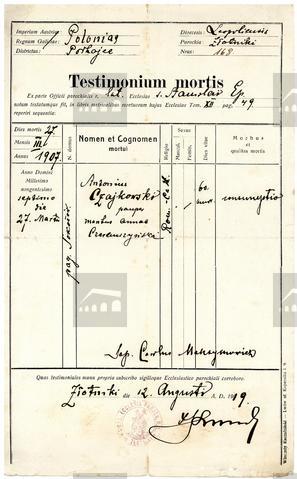 Imperium Austriae Polonia
Regnum Galiciae
Districtus: Podhajce
Dioecesis Leopoliensis
Parochia Złotniki
Nrus 168
Testimonium mortis
Ex parte Officii parochialis r. lat. Ecclesiae S. Stanislai Ep.
notum testatumque fit, in libris metricalibus mortuorum hujus Ecclesiae Tom. XII pag. 49
reperiri sequentia:
Dies mortis 27.
Mensis III
Annus 1907.
N. domus
Nomen et Cognomen
mortui
Religio
Sexus
Mascul.
Femin.
Dies vitae
Morbus
et
qualitas mortis
Anno Domini
Millesimo
nongentesimo
septimo
die
27. Martii
pag. Sokołów
Antonius
Czajkowski
pauper
maritus Annae
Rom. Cath.
60
Sep. Carolus Maksymowicz
Quas testimoniales manu propria subscribo sigilloque Ecclesiastico parochiali corroboro.
Złotniki die 12. Augusti A. D. 1919.